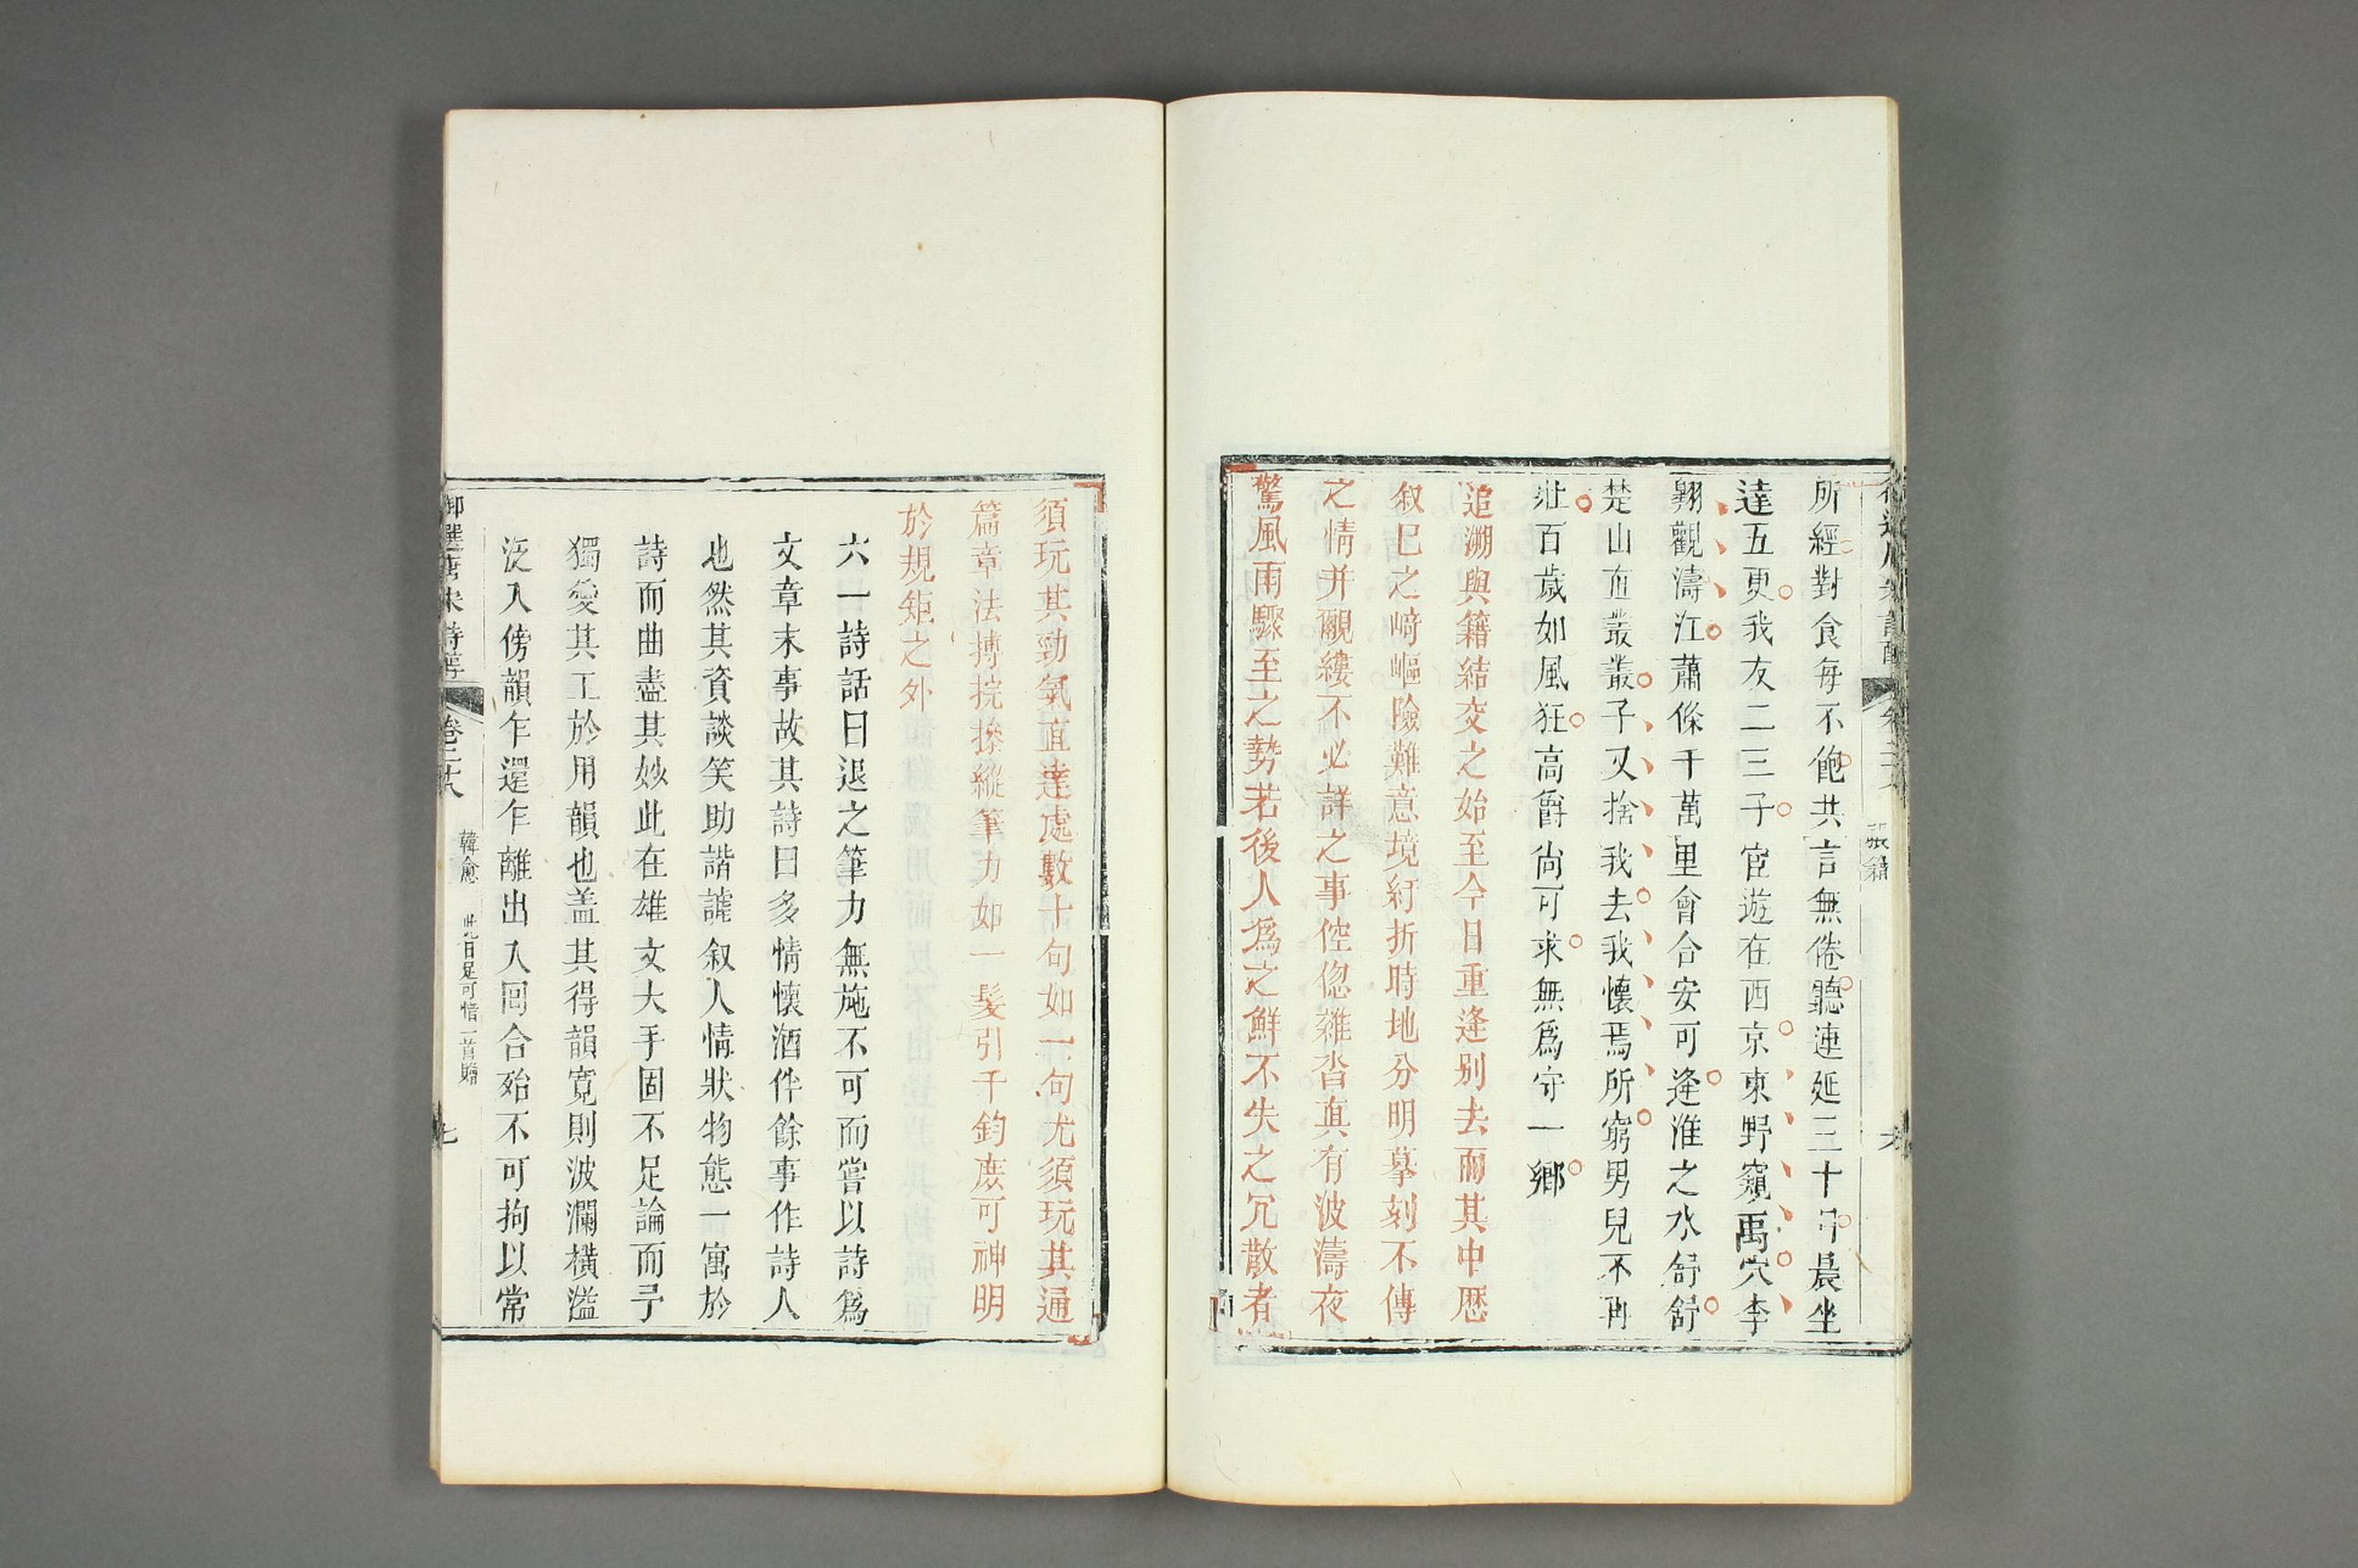 所經對食每不飽共言無倦聽連延三十日晨坐
達五更我友二三子宦遊在西京東野窺禹穴李
翱觀濤江蕭條千萬里會合安可逢淮之水舒舒
楚山直叢叢子又捨我去我懷焉所窮男兒不再
壯百歲如風狂高爵尚可求無爲守一鄉
追溯與籍結交之始至今日重逢別去而其中歷
叙已之崎嶇險難意境紆折時地分明摹刻不傳
之情并覼縷不必詳之事倥偬雜沓真有波濤夜
驚風雨驟至之勢若後人爲之鮮不失之冗散者
張籍
須玩其勁氣直達處數十句如一句尤須玩其通
篇章法搏挖操縱筆力如一髮引千鈞庶可神明
於規矩之外
六一詩話曰退之筆力無施不可而嘗以詩爲
文章末事故其詩曰多情懷酒伴餘事作詩人
也然其資談笑助諧謔叙人情狀物態一寓於
詩而曲盡其妙此在雄文大手固不足論而予
獨愛其工於用韻也盖其得韻寬則波瀾橫溢
泛入傍韻乍還乍離出入回合殆不可拘以常
御選唐宋詩醇 卷二十八 韓愈 此日足可惜一首贈 七